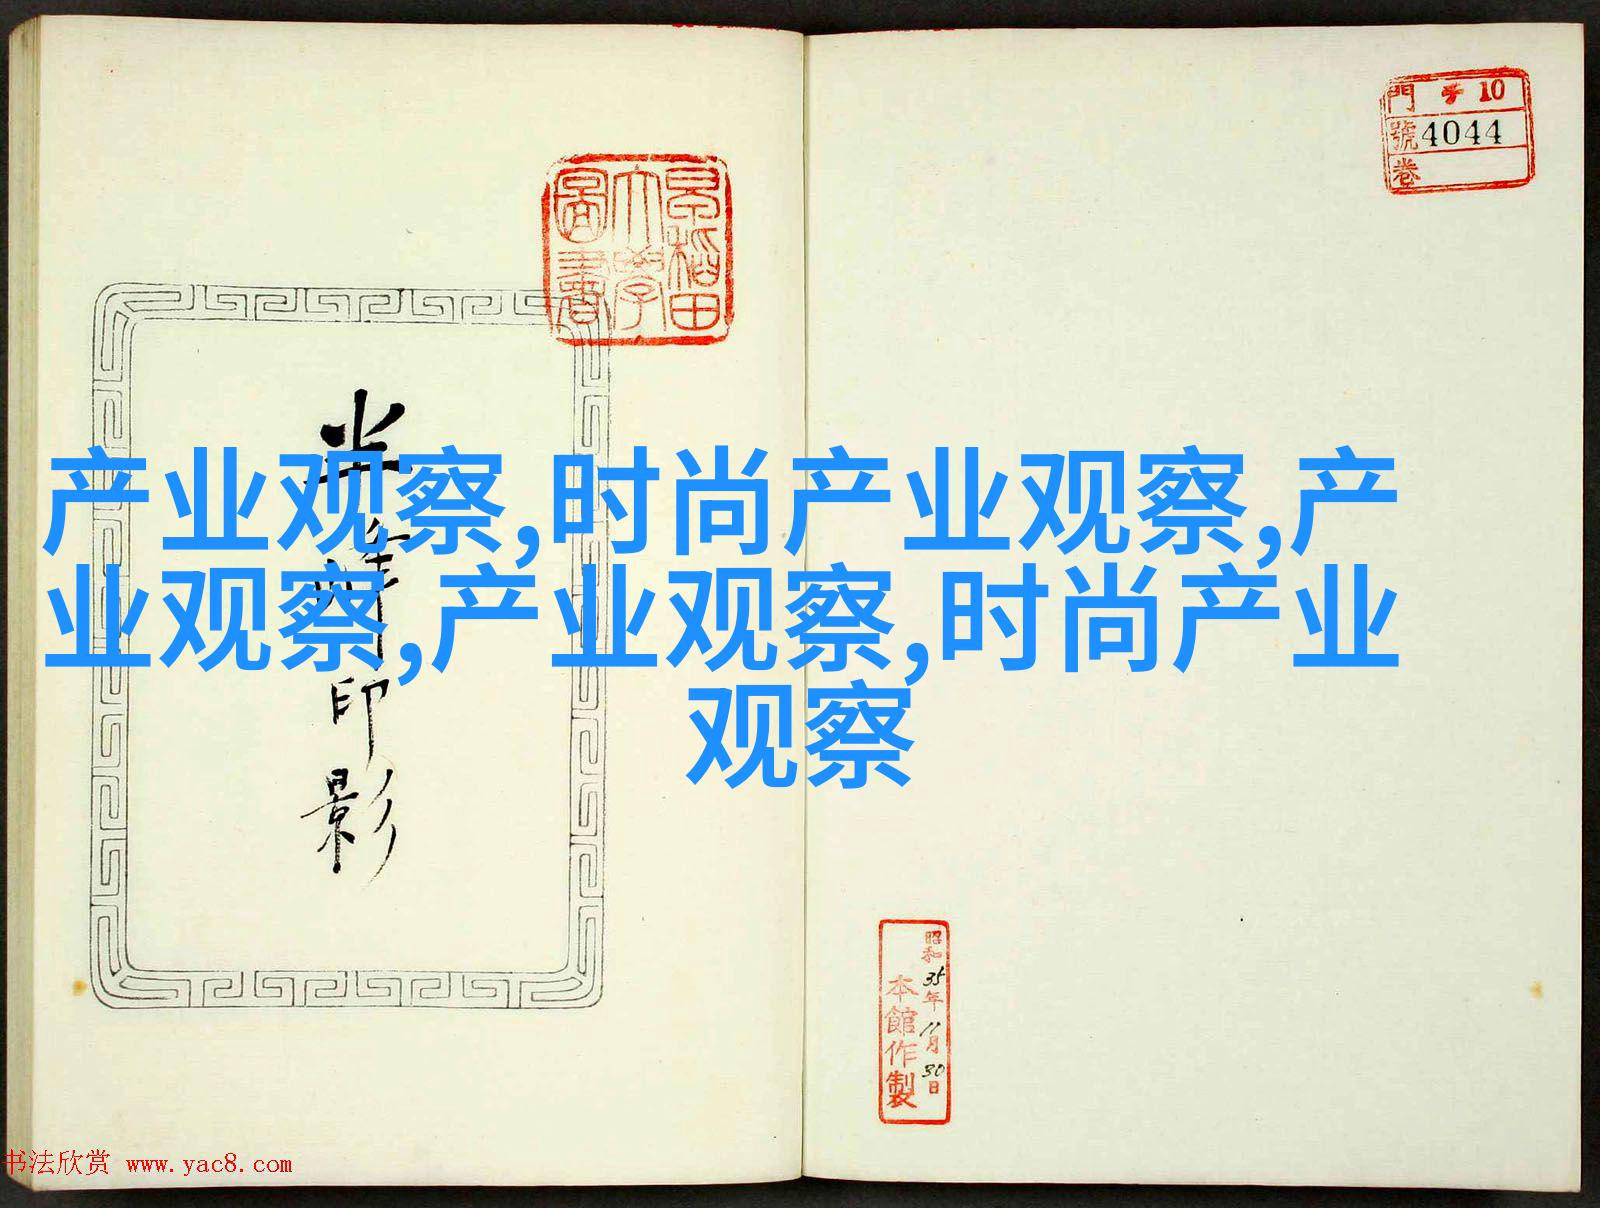 門 チ 10
號 4044
卷
早稻田
大學
圖書
半峰印影
产业观察,时尚产业观察,产
业观察,产业观察,时尚产业
观察
昭和35年11月30日
本館作製
书法欣赏 www.yac8.com